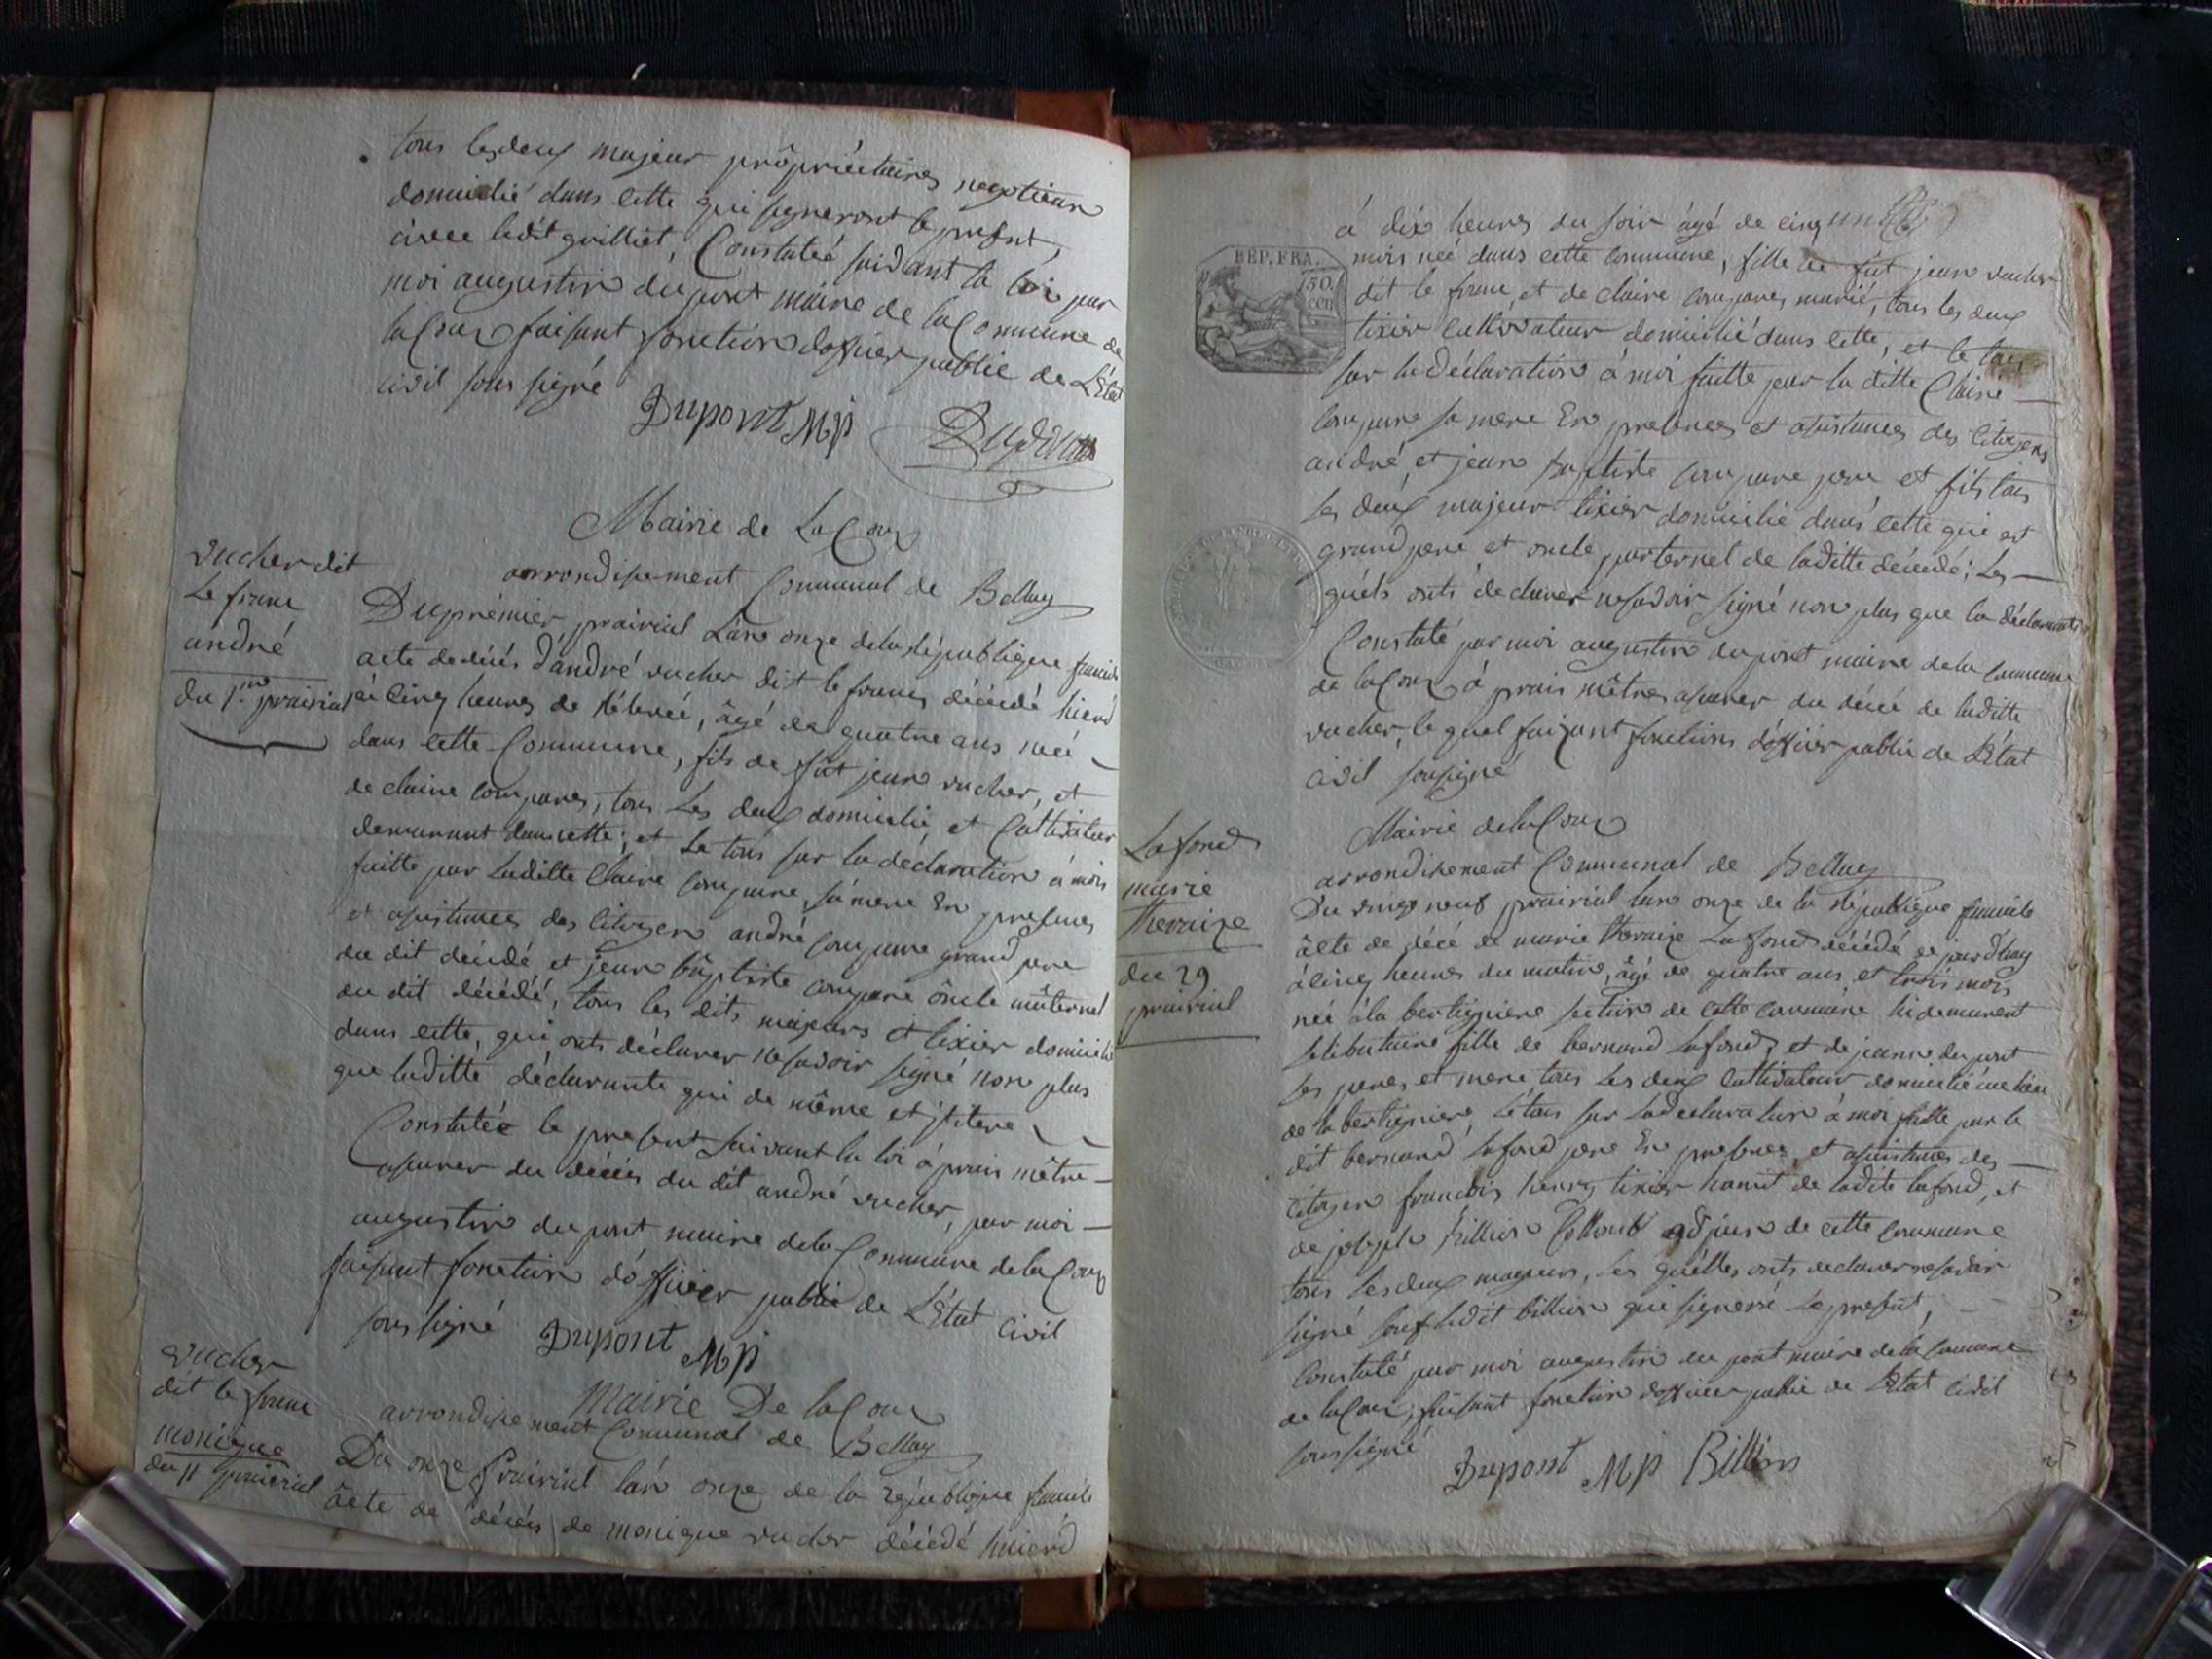 tous lesdeux majeur prôpriéetaires negotiean
domicilié dans cette qui signeront le present,
avec ledit guilliet, Constateé suidant la loi par
moi augustin du pont maire de la Commune de
laCoux faisant fonction doffiier publie de L'État
civil sous signé
Dupont Mp
Mairie de La Coux
arrondissement Communal de Bellay
vucher dit
Le franc
andré
du 1er prairial
Du prémier prairial L'ans onze dela république francoise
acte dedécés d'andré vucher dit le franc décédé hierd
à cinq heures de rélevéé, âgé de quatre ans neé
dans cette Commune, fils de fût jean vucher, et
de claire compares, tous Les deux domicilié et Cultivateur
demeurant dans cette; et Le tous sur la déclaration à moi
faitte par Laditte Claire compare, sa mere En presences
et asistances des Citoyen andré compare grand pere
du dit décédé et jean bâptiste compare ôncle mâternel
du dit décédé, tous les dits majeurs et tixier domicilié
dans cette, qui onts déclarer ne savoir signé non plus
que laditte déclarante qui de même et jtitere
Constatée le present suivant la loi à prais mêtre
asurer du décés du dit andré vucher, par moi
augustin du pont maire dela Commune dela Coux
faisant fonction d'offiier public de L'État civil
sous signé Dupont Mp
Mairie De la Coux
arrondissement Communal de Bellay
vucher
dit le franc
monique
du 11 prairial
Du onze prairial lan onze de la république francoise
âcte de décés de monique vucher décédé hierd
à dix heures du soir âgé de cinq
REP. FRA.
50.
cen
mois neé dans cette Commune, fille de fût jean vucher
dit le franc, et de claire compares marié, tous les deux
tixier cultivateur domicilié dans cette, et le tous
sur la déclaration à moi faitte par la ditte Claire
compare sa mere En presences et asistances des Citoyens
andré, et jean baptiste compare pere et fils tous
les deux majeur tixier domicilié dans cette qui est
grand pere et oncle parternel de laditte décédé; Les
quéls onts déclarer ne savoir signé non plus que la déclarante
Constaté par moi augustin du pont maire dela Commune
de laCoux à prais mêtres asurer du décé de laditte
vucher, le quel faizant fonctions d'offiier public de L'État
civil sousigné
Mairie delaCoux
arrondissement Communal de Bellay
La fond
marie
theraize
du 29
prairial
Du vinge neuf prairial lan onze de la république francoise
âcte de décé de marie theraize Lafond décédé ce jourd'huy
à cinq heures du matin, âgé de quatre ans et trois mois
neé à la bertigniere section de cette Commune hi demeurent
selibataire fille de bernand Lafond, et de jeanne du pont
ses peres et mere, tous les deux Cultivateur domicilié au lieu
de la bertigniere, Letous sur Ladeclaration à moi faitte par le
dit bernand Lafond pere En presences, et asistances des
Citoyen francois henry tixier hamit de ladite lafond, et
de joseph billion adjoin de cette Commune
tous Lesdeux majeurs, les quélles onts declarer nesavoir
signé souf ledit billion qui signerré Le present,
Constaté par moi augustin du pont maire dela Commune
de la Coux, faisant fonction d'offiier publie de L'État Civil
sous signé
Dupont Mp Billion